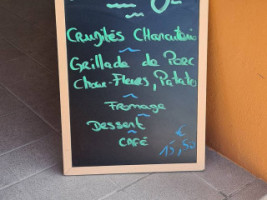 Crudités Charcuterie
Grillade de Porc
Choux-Fleurs, Patato
Fromage
Dessert
CAFÉ
15,50 €